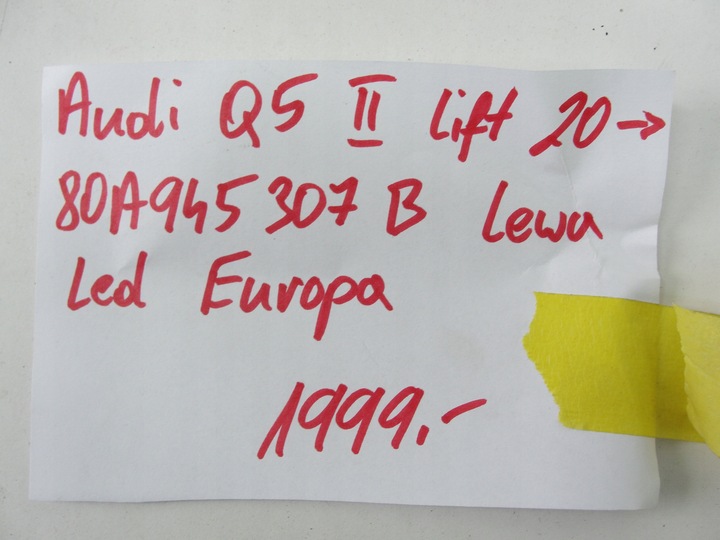 Audi Q5 II Lift 20→
80A945307B Lewa
Led Europa
1999,-